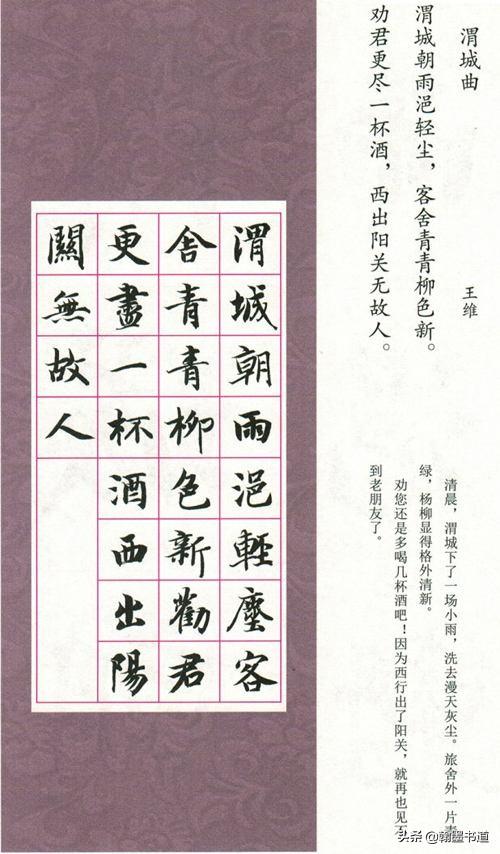 渭城曲
王维
渭城朝雨浥轻尘，客舍青青柳色新。
劝君更尽一杯酒，西出阳关无故人。
清晨，渭城下了一场小雨，洗去漫天灰尘。旅舍外一片青
绿，杨柳显得格外清新。
劝您还是多喝几杯酒吧！因为西行出了阳关，就再也见不
到老朋友了。
渭城朝雨浥輕塵客
舍青青柳色新勸君
更盡一杯酒西出陽
關無故人
头条 @翰墨书道